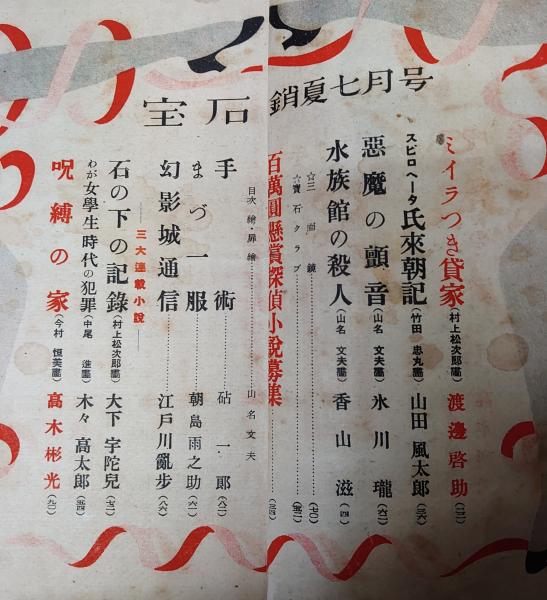 宝石 銷夏七月号
ミイラつき貸家(村上松次郎畫) 渡邊啓助
スピロヘータ氏來朝記(竹田忠丸畫) 山田風太郎
惡魔の顫音(山名文夫畫) 氷川瓏
水族館の殺人(山名文夫畫) 香山滋(四)
☆三面鏡
☆寶石クラブ
百萬圓懸賞探偵小說募集
目次繪・扉繪 山名文夫
手術 砧一郎
まづ一服 朝島雨之助
幻影城通信 江戸川亂步
三大連載小說
石の下の記錄(村上松次郎畫) 大下宇陀兒
わが女學生時代の犯罪(中尾進畫) 木々高太郎
呪縛の家(今村恒美畫) 高木彬光